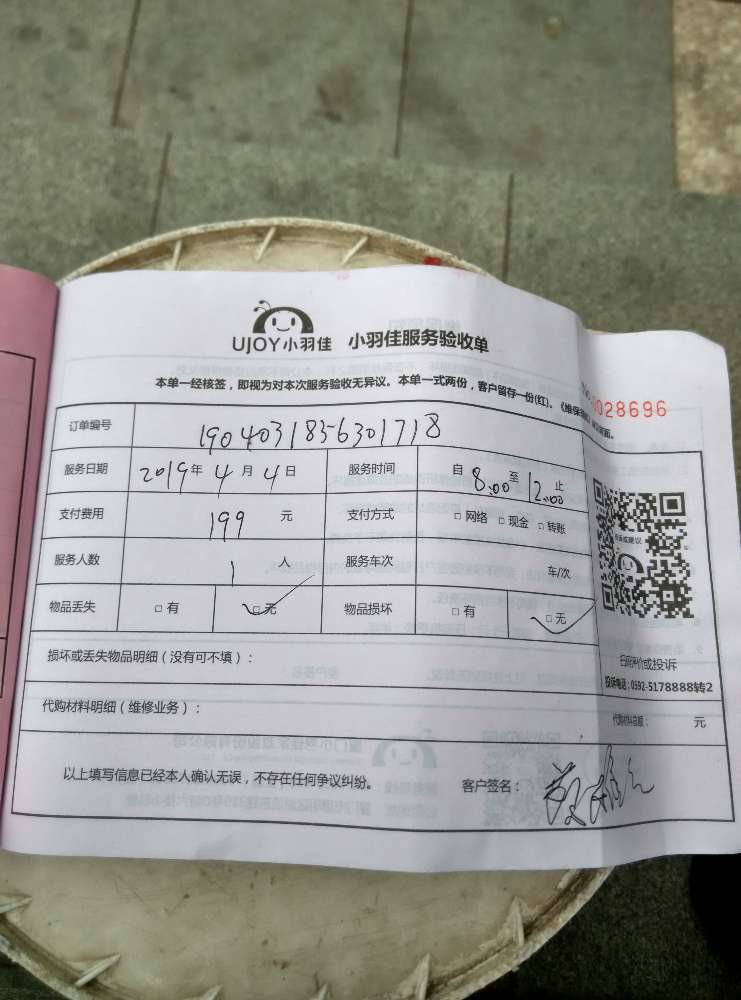 UJOY小羽佳 小羽佳服务验收单
本单一经核签，即视为对本次服务验收无异议。本单一式两份，客户留存一份(红)。《维保
0028696
订单编号 1904031856301718
服务日期 2019年4月4日 服务时间 自8:00至12:00止
支付费用 199元 支付方式 □网络 □现金 □转账
服务人数 1人 服务车次 车/次
物品丢失 □有 □无 物品损坏 □有 □无
扫码评价或投诉
投诉电话：0592-5178888转2
损坏或丢失物品明细（没有可不填）：
代购材料明细（维修业务）： 代购材料总额： 元
以上填写信息已经本人确认无误，不存在任何争议纠纷。 客户签名：